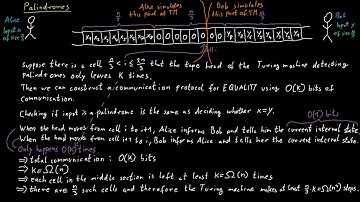 Palindromes
Alice Input x of size n/3
Alice simulates this part of TM
Bob simulates this part of TM
Bob Input y of size n/3
n/3 n/3 n/3
0 0 0 0 0 0
Suppose there is a cell n/3 < i < 2n/3 that the tape head of the Turing machine detecting
palindromes only leaves K times.
Then we can construct a communication protocol for EQUALITY using O(k) bits of
communication.
Checking if input is a palindrome is the same as deciding whether x=y.
O(1) bits
When the head moves from cell i to i+1, Alice informs Bob and tells him the current internal state.
When the head moves from cell i+1 to i, Bob informs Alice and tells her the current internal state.
Only happens O(k) times
⇒ total communication: O(k) bits
⇒ K=Ω(n)
⇒ each cell in the middle section is left at least K=Ω(n) times
⇒ there are n/3 such cells and therefore the Turing machine makes at least n/3·K=Ω(n²) steps.